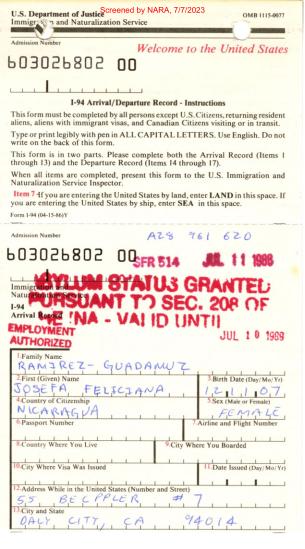 Screened by NARA, 7/7/2023
U.S. Department of Justice
Immigration and Naturalization Service
OMB 1115-0077
Admission Number
Welcome to the United States
603026802 00
I-94 Arrival/Departure Record - Instructions
This form must be completed by all persons except U.S. Citizens, returning resident
aliens, aliens with immigrant visas, and Canadian Citizens visiting or in transit.
Type or print legibly with pen in ALL CAPITAL LETTERS. Use English. Do not
write on the back of this form.
This form is in two parts. Please complete both the Arrival Record (Items 1
through 13) and the Departure Record (Items 14 through 17).
When all items are completed, present this form to the U.S. Immigration and
Naturalization Service Inspector.
Item 7-If you are entering the United States by land, enter LAND in this space. If
you are entering the United States by ship, enter SEA in this space.
Form I-94 (04-15-86)Y
Admission Number
A28 961 620
603026802 00
SFR 514 JUL 11 1988
Immigration and
Naturalization Service
ASYLUM STATUS GRANTED
PURSUANT TO SEC. 208 OF
THE INA - VALID UNTIL
I-94
Arrival Record
EMPLOYMENT
AUTHORIZED
JUL 10 1989
1. Family Name
RAMIREZ-GUADAMUZ
2. First (Given) Name
JOSEFA FELICIANA
3. Birth Date (Day/Mo/Yr)
12 11 07
4. Country of Citizenship
NICARAGUA
5. Sex (Male or Female)
FEMALE
6. Passport Number
7. Airline and Flight Number
8. Country Where You Live
9. City Where You Boarded
10. City Where Visa Was Issued
11. Date Issued (Day/Mo/Yr)
12. Address While in the United States (Number and Street)
55 #7
13. City and State
DALY CITY, CA 94014